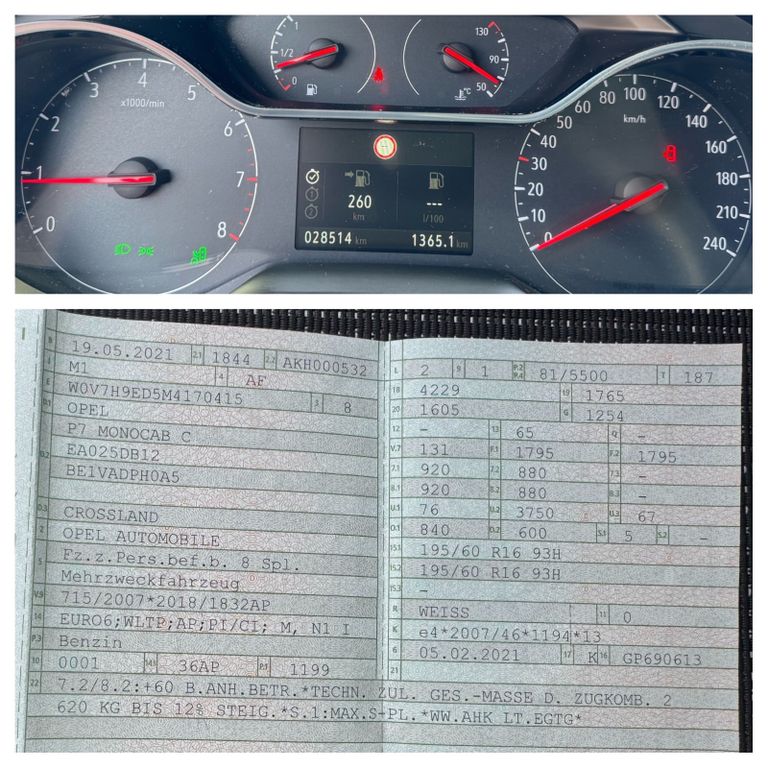 1 1/2 0
130 90 50 °C
0 1 2 3 4 5 6 7 8
x1000/min
0 10 20 30 40 50 60 80 100 120 140 160 180 210 240
km/h
1 260 --- 
2 km l/100
028514 km 1365.1 km
B 19.05.2021 2.1 1844 2.2 AKH000532
J M1 4 AF
E W0V7H9ED5M4170415 3 8
D.1 OPEL
P7 MONOCAB C
D.2 EA025DB12
BE1VADPH0A5
D.3 CROSSLAND
2 OPEL AUTOMOBILE
5 Fz.z.Pers.bef.b. 8 Spl.
Mehrzweckfahrzeug
V.9 715/2007*2018/1832AP
14 EURO6;WLTP;AP;PI/CI; M, N1 I
P.3 Benzin
10 0001 14.1 36AP P.1 1199
L 2 9 1 P.2 P.4 81/5500 T 187
18 4229 19 1765
20 1605 G 1254
12 - 13 65 Q -
V.7 131 F.1 1795 F.2 1795
7.1 920 7.2 880 7.3 -
8.1 920 8.2 880 8.3 -
U.1 76 U.2 3750 U.3 67
O.1 840 O.2 600 S.1 5 S.2 -
15.1 195/60 R16 93H
15.2 195/60 R16 93H
15.3 -
R WEISS 11 0
K e4*2007/46*1194*13
6 05.02.2021 17 K 16 GP690613
21
22 7.2/8.2:+60 B.ANH.BETR.*TECHN. ZUL. GES.-MASSE D. ZUGKOMB. 2
620 KG BIS 12% STEIG.*S.1:MAX.S-PL.*WW.AHK LT.EGTG*